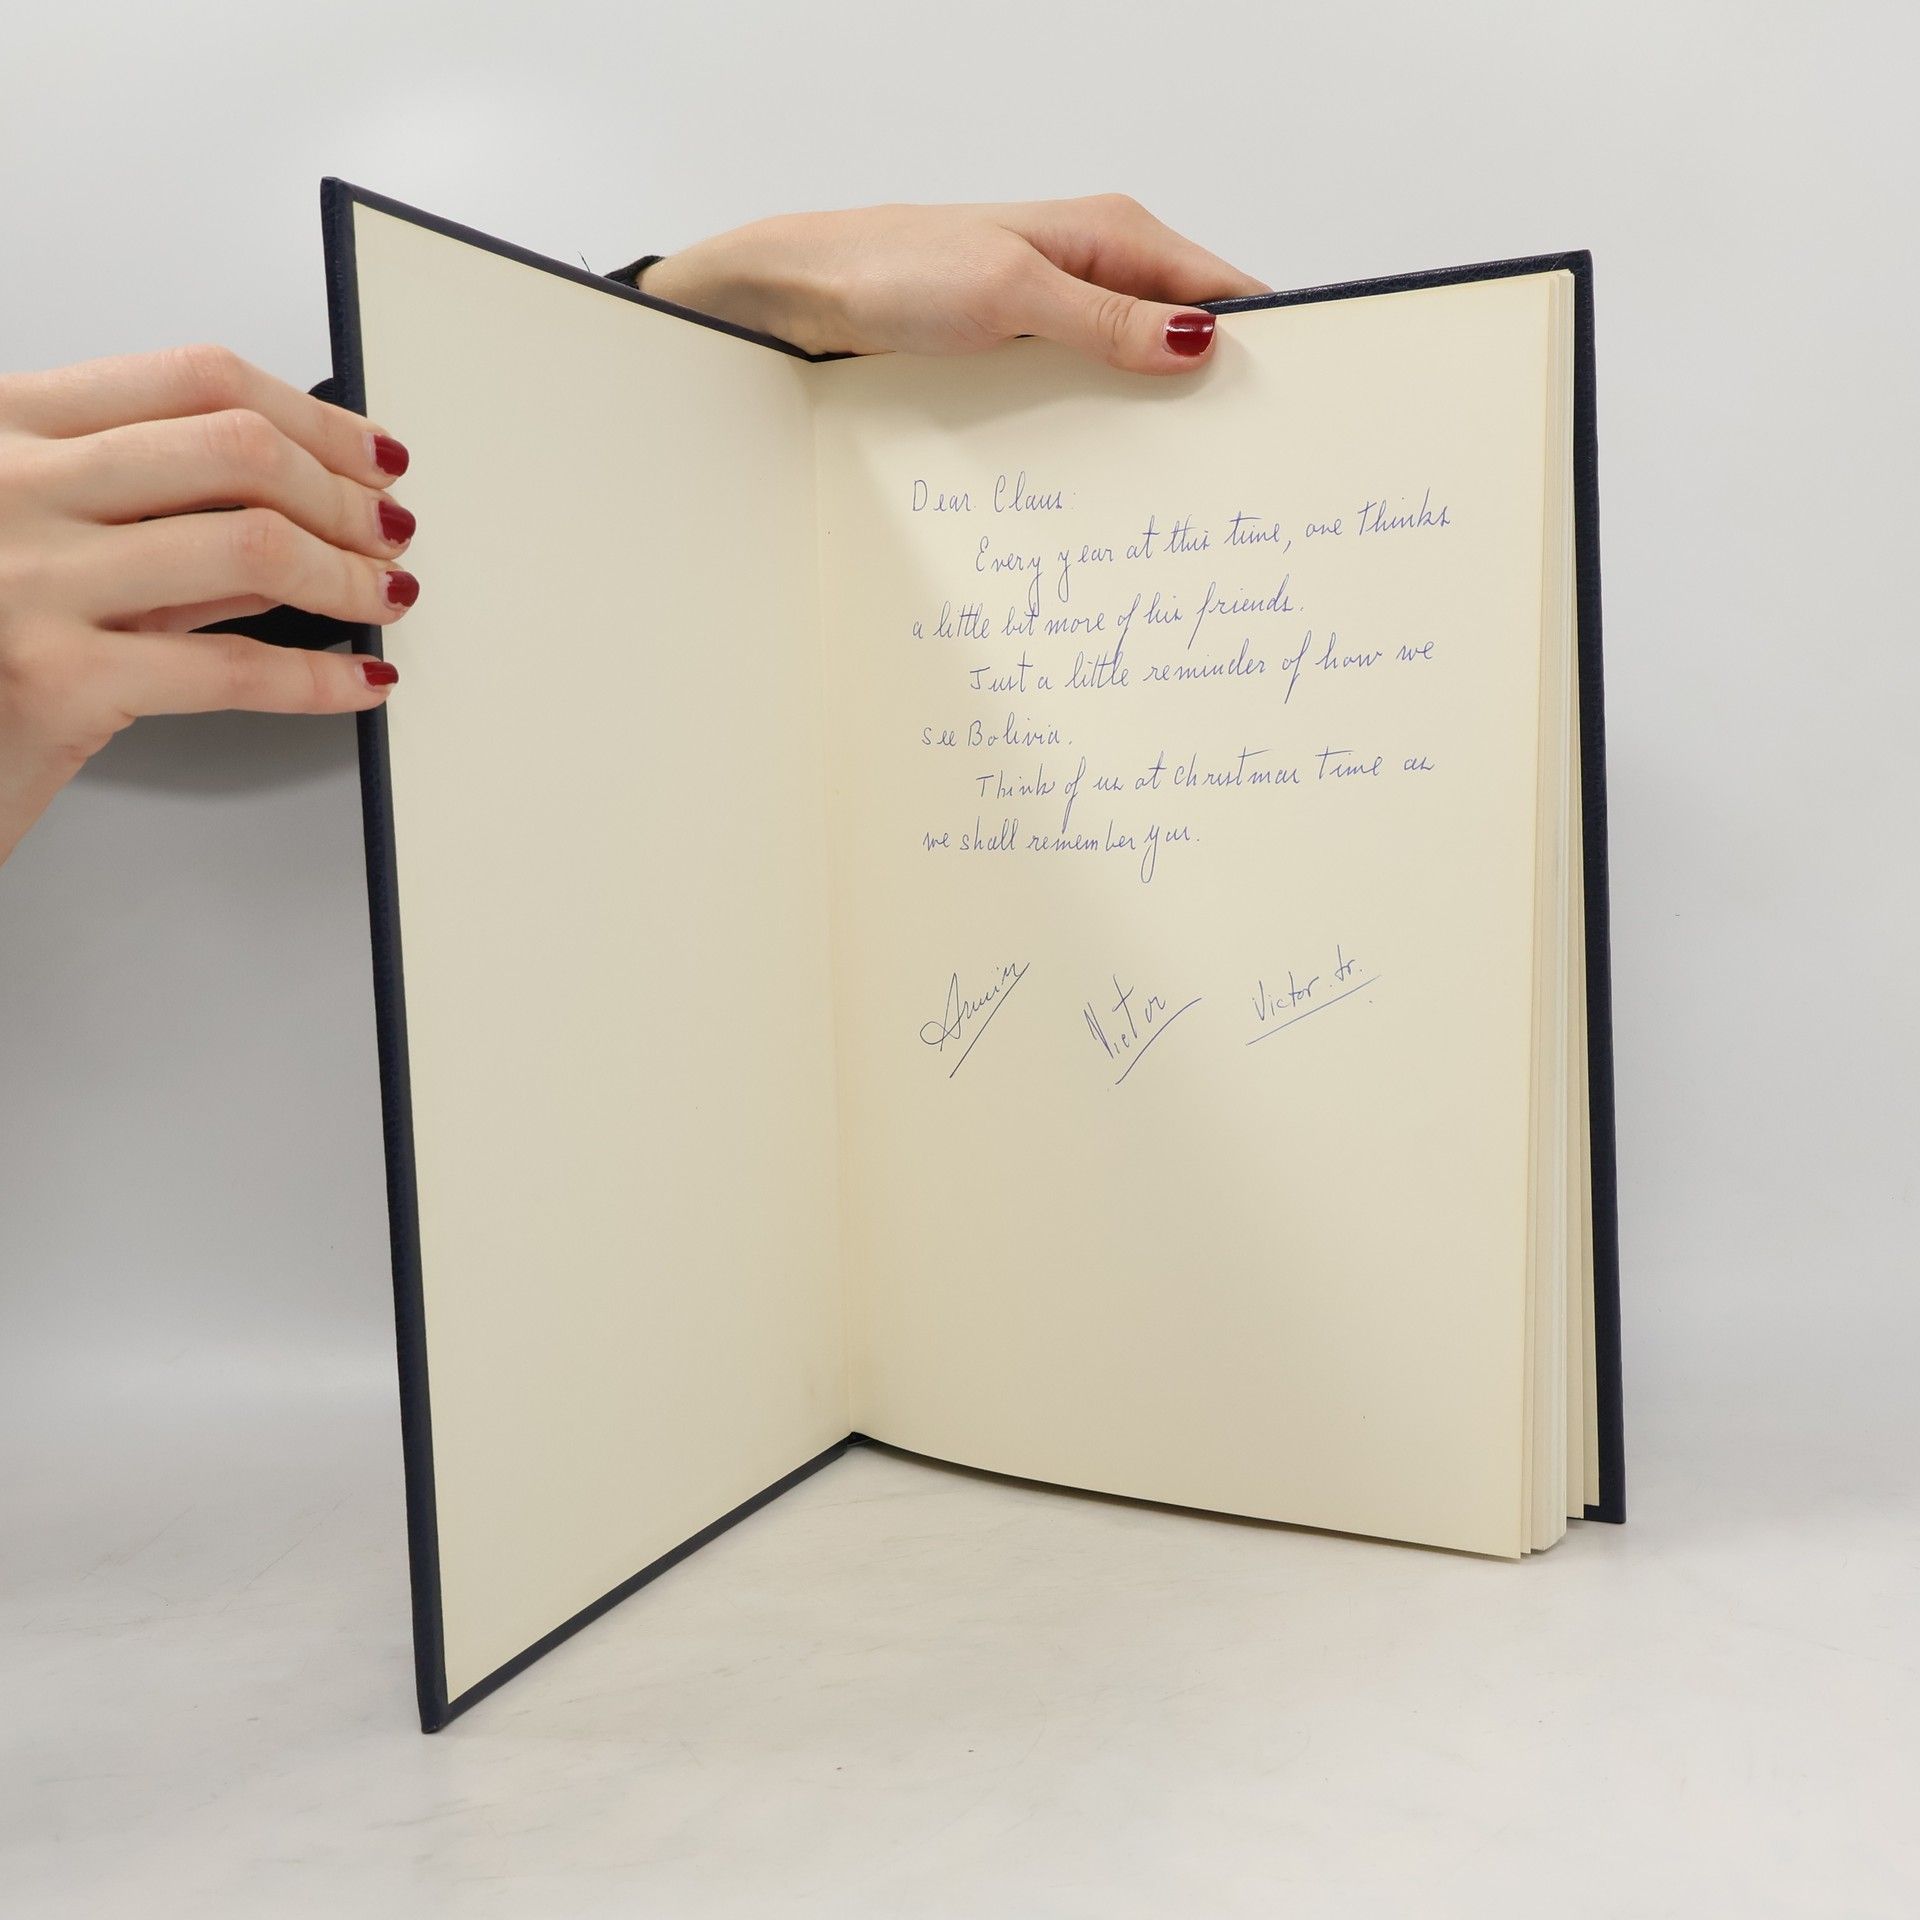 Dear Claus:
Every year at this time, one thinks
a little bit more of his friends.
Just a little reminder of how we
see Bolivia.
Think of us at christmas time as
we shall remember you.
Victor Victor Jr.